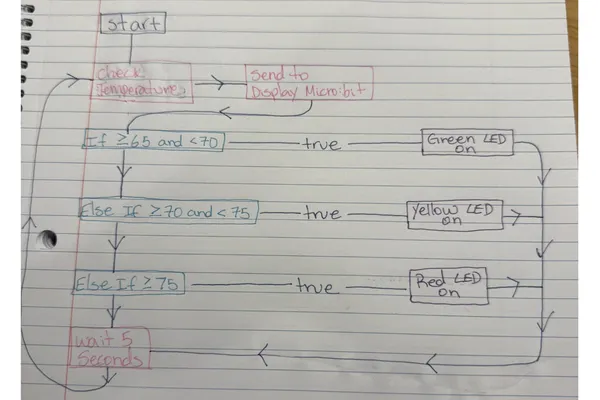 start
Check
Temperature
Send to
Display Micro:bit
If ≥65 and <70
true
Green LED
on
Else If ≥70 and <75
true
Yellow LED
on
Else If ≥75
true
Red LED
on
Wait 5
Seconds